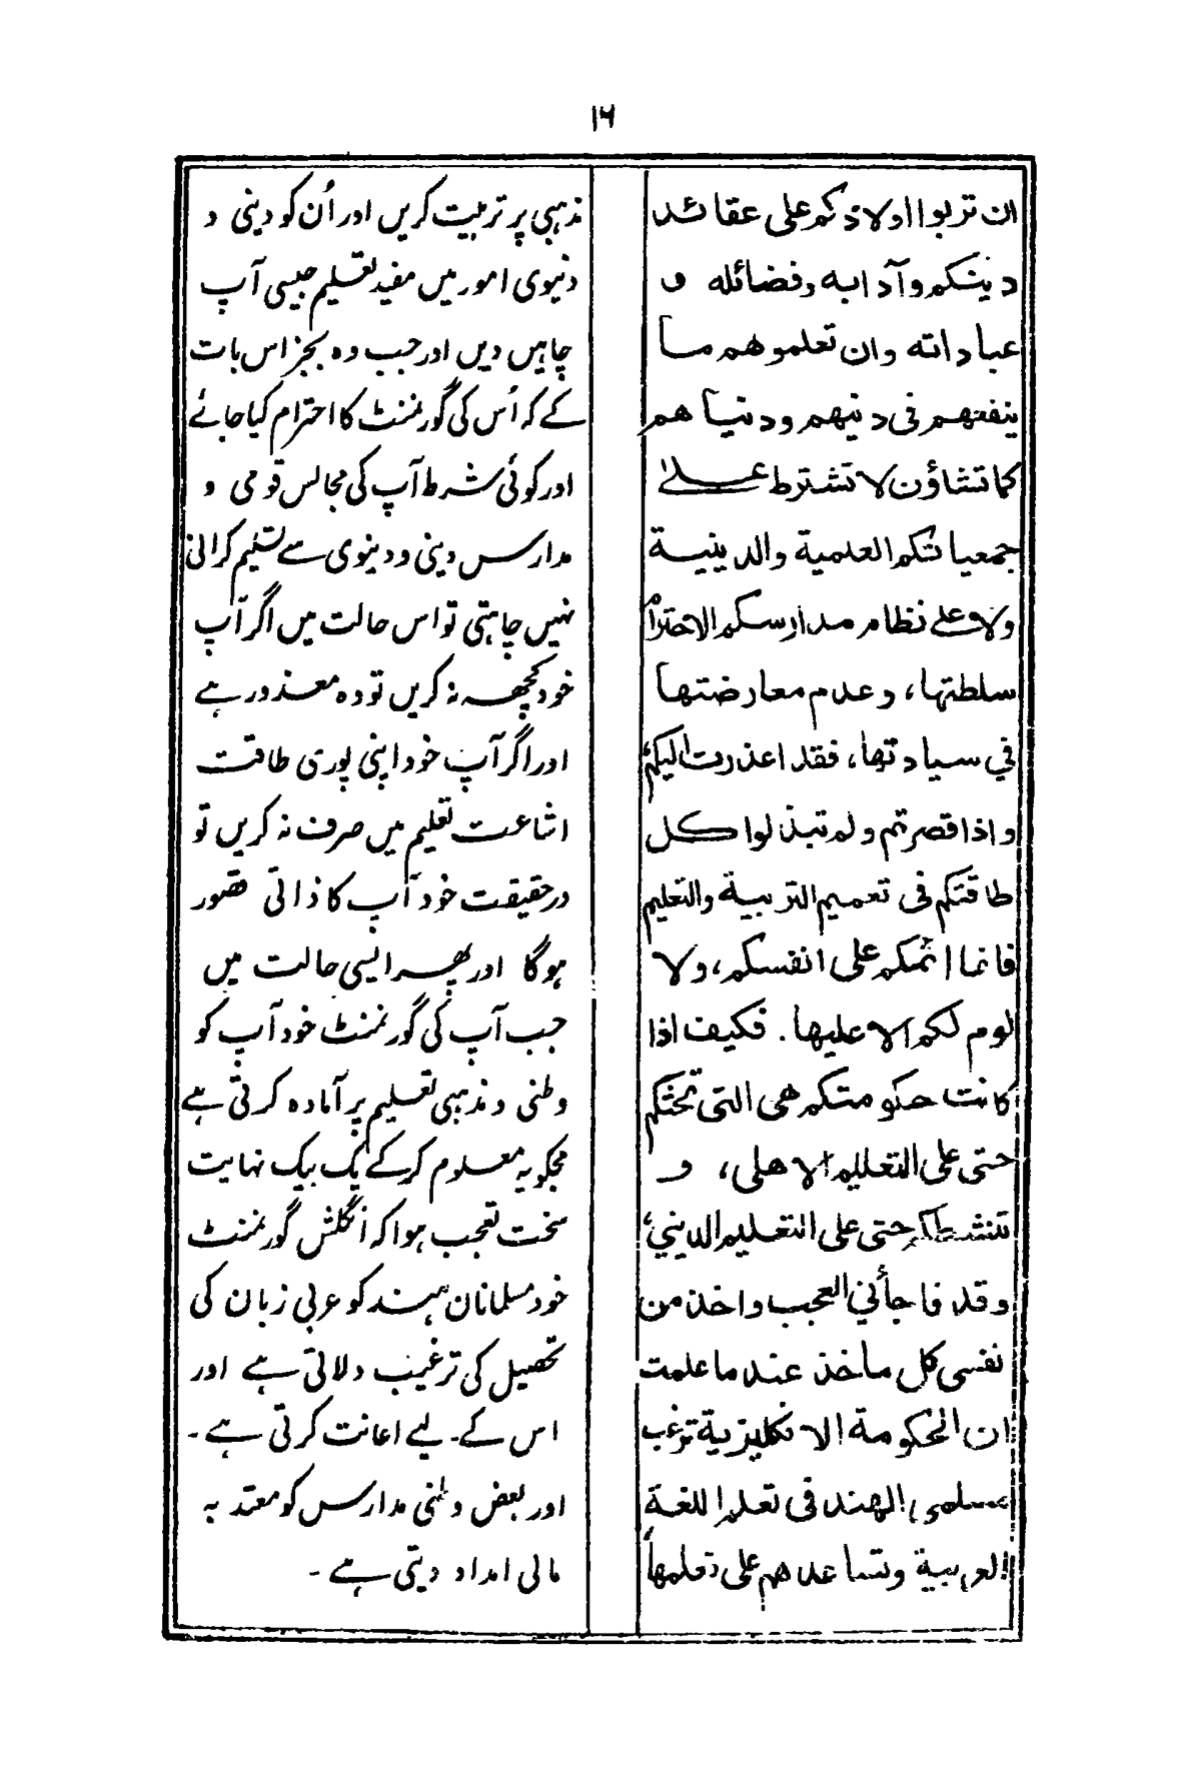 ۱۶
ان تربوا اولادكم على عقائد
دينكم وآدابه وفضائله و
عباداته وان تعلموهم ما
ينفعهم فى دينهم ودنياهم
كما تشاؤن لا تشترط على
جمعياتكم العلمية والدينية
ولا على نظام مدارسكم الا احترام
سلطتها، وعدم معارضتها
في سيادتها، فقد اعذرت اليكم
واذا قصرتم ولم تبذلوا كل
طاقتكم فى تعميم التربية والتعليم
فانما اثمكم على انفسكم، ولا
لوم لكم الا عليها. فكيف اذا
كانت حكومتكم هى التى تحثكم
حتى على التعليم الاهلى، و
تنشطكم حتى على التعليم الديني،
وقد فاجأني العجب واخذ من
نفسى كل مأخذ عند ما علمت
ان الحكومة الانكليزية ترغب
مسلمى الهند فى تعلم اللغة
العربية وتساعدهم على تعلمها
مذہبی پر تربیت کریں اور اُن کو دینی و
دنیوی امور میں مفید تعلیم جیسی آپ
چاہیں دیں اور جب وہ بجز اس بات
کے کہ اُس کی گورنمنٹ کا احترام کیا جائے
اور کوئی شرط آپ کی مجالس قومی و
مدارس دینی و دینوی سے تسلیم کرانی
نہیں چاہتی تو اس حالت میں اگر آپ
خود کچھہ نہ کریں تو وہ معذور ہے
اور اگر آپ خود اپنی پوری طاقت
اشاعت تعلیم میں صرف نہ کریں تو
درحقیقت خود آپ کا ذاتی قصور
ہوگا اور پھر ایسی حالت میں
جب آپ کی گورنمنٹ خود آپ کو
وطنی و مذہبی تعلیم پر آمادہ کرتی ہے
مجکو یہ معلوم کرکے یک بیک نہایت
سخت تعجب ہوا کہ انگلش گورنمنٹ
خود مسلمانان ہند کو عربی زبان کی
تحصیل کی ترغیب دلاتی ہے اور
اس کے لیے اعانت کرتی ہے -
اور بعض وطنی مدارس کو معتد بہ
مالی امداد دیتی ہے -